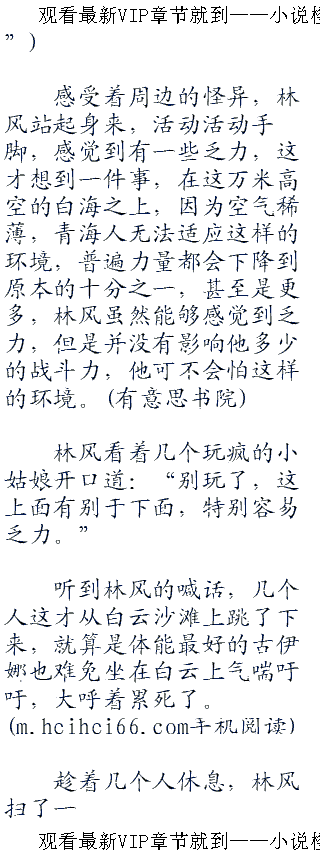 观看最新VIP章节就到——小说
”)
感受着周边的怪异，林
风站起身来，活动活动手
脚，感觉到有一些乏力，这
才想到一件事，在这万米高
空的白海之上，因为空气稀
薄，青海人无法适应这样的
环境，普遍力量都会下降到
原本的十分之一，甚至是更
多，林风虽然能够感觉到乏
力，但是并没有影响他多少
的战斗力，他可不会怕这样
的环境。(有意思书院)
林风看着几个玩疯的小
姑娘开口道：“别玩了，这
上面有别于下面，特别容易
乏力。”
听到林风的喊话，几个
人这才从白云沙滩上跳了下
来，就算是体能最好的古伊
娜也难免坐在白云上气喘吁
吁，大呼着累死了。
(m.hcihci66.com手机阅读)
趁着几个人休息，林风
扫了一
观看最新VIP章节就到——小说